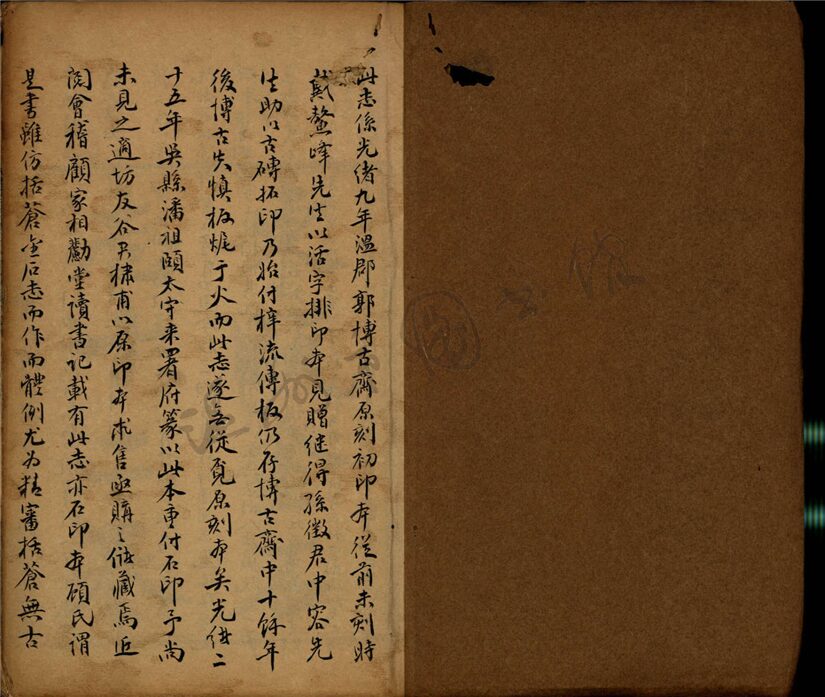 此志係光緒九年溫郡郭博古齋原刻初印本從前未刻時
戴鼇峰先生以活字排印本見贈继得孫徵君中容先
生助以古磚拓印乃始付梓流傳板仍存博古齋中十餘年
後博古失慎板燬于火而此志遂無從覓原刻本矣光绪二
十五年吳縣潘祖頤太守来署府篆以此本重付石印予尚
未見之適坊友谷君棣甫以原印本求售亟購之儲藏焉近
閱會稽顧家相勴堂讀書記載有此志亦石印本顧氏謂
是書雖仿括蒼金石志而作而體例尤为精審括蒼無古